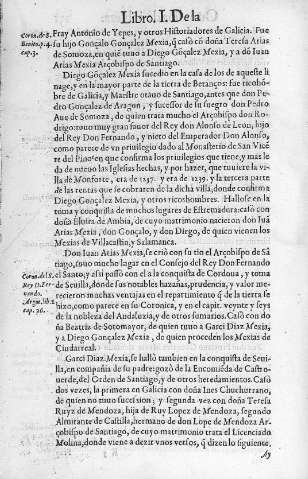 Libro. I. De la
Coron. de S.
Benito. p. 4.
cap. 3.
Fray Antonio de Yepes, y otros Historiadores de Galicia. Fue
su hijo Gonçalo Gonçalez Mexia, q̃ casò cõ doña Teresa Arias
de Somoza, en quiẽ tuuo a Diego Gõçalez Mexia, y a dõ Iuan
Arias Mexia Arçobispo de Santiago.
Diego Gõçalez Mexia sucedio en la casa de los de aqueste li
nage, y en la mayor parte de la tierra de Betanços: fue ricohõ
bre de Galicia, y Maestre otauo de Santiago, antes que don Pe-
dro Gonçalez de Aragon, y sucessor de su suegro don Pedro
Aue de Somoza, de quien trata mucho el Arçobispo don Ro-
drigo: tuuo muy gran fauor del Rey don Alonso de Leon, hijo
del Rey Don Fernando, y nieto del Emperador Don Alonso,
como parece de vn priuilegio dado al Monasterio de San Vicẽ
te del Pino, en que confirma los priuilegios que tiene, y mas le
da de nueuo las Iglesias hechas, y por hazer, que tuuiere la vi-
lla de Monforte, era de 1237. y era de 1239. y la tercera parte
de las rentas que se cobraren de la dicha villa, donde confirma
Diego Gonçalez Mexia, y otros ricoshombres. Hallose en la
toma y conquista de muchos lugares de Estremadura: casò con
doña Eluira de Ambia, de cuyo matrimonio nacieron don Iuã
Arias Mexia, don Gonçalo, y don Diego, de quien vienen los
Mexias de Villacastin, y Salamanca.
Don Iuan Arias Mexia, se criò con su tio el Arçobispo de Sã
tiago, tuuo mucho lugar en el Consejo del Rey Don Fernando
Coron. del S.
Rey D. Fer-
nando.
Argot. lib. 1.
cap. 26.
el Santo, y assi passò con el a la conquista de Cordoua, y toma
de Seuilla, donde sus notables hazañas, prudencia, y valor me-
recieron muchas ventajas en el repartimiento q̃ de la tierra se
hizo, como parece en su Coronica, y en el capit. veynte y seys
de la nobleza del Andaluzia, y de otros sumarios. Casò con do
ña Beatriz de Sotomayor, de quien tuuo a Garci Diaz Mexia,
y a Diego Gonçalez Mexia, de quien proceden los Mexias de
Ciudarreal.
Garci Diaz Mexia, se hallò tambien en la conquista de Seui-
lla, en compañia de su padre: gozò de la Encomiẽda de Castro-
uerde, del Orden de Santiago, y de otros heredamientos. Casò
dos vezes, la primera en Galicia con doña Ines Chucherrano,
de quien no tuuo sucession; y segunda vez con doña Teresa
Ruyz de Mendoza, hija de Ruy Lopez de Mendoza, segundo
Almirante de Castilla, hermano de don Lope de Mendoza Ar-
çobispo de Santiago, de cuyo matrimonio trata el Licenciado
Molina, donde viene a dezir vnos versos, q̃ dizen lo siguiente,